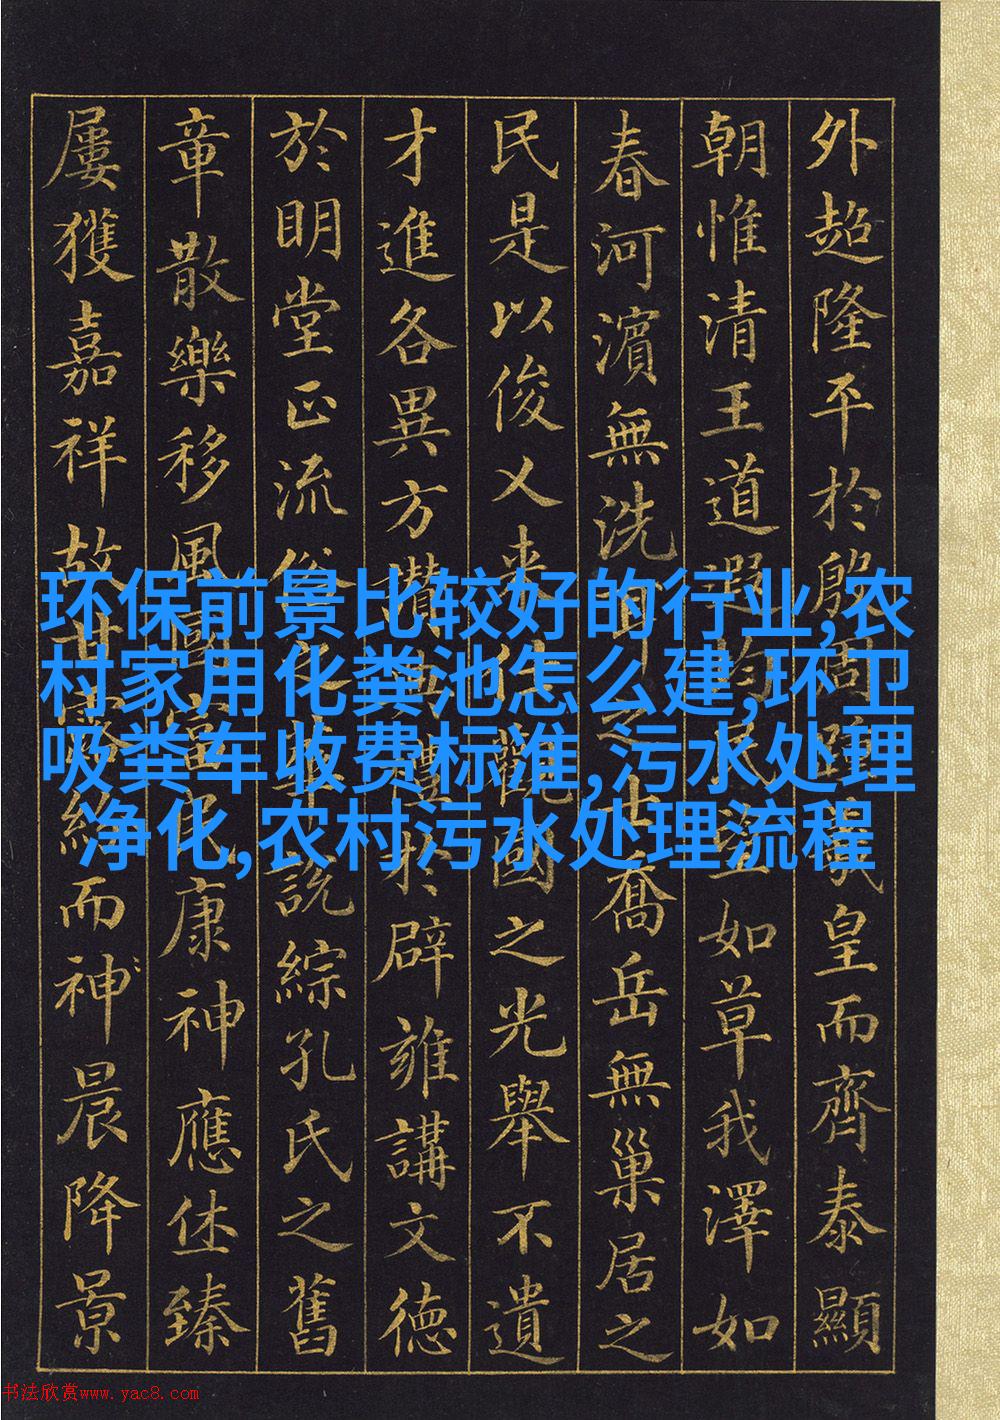 外超隆平於殷周踵羲皇而齊泰顯
朝惟清王道遐均民望如草我澤如
春河濱無洗耳之士喬岳無巢居之
民是以俊乂来仕觀國之光舉不遺
才進各異方讃典禮於辟雍講文德
於明堂正流俗之華說綜孔氏之舊
章散樂移風國富民康神應休臻
屢獲嘉祥故甘露紛而神晨降景
环保前景比较好的行业,农
村家用化粪池怎么建,环卫
吸粪车收费标准,污水处理
净化,农村污水处理流程
书法欣赏www.yac8.com